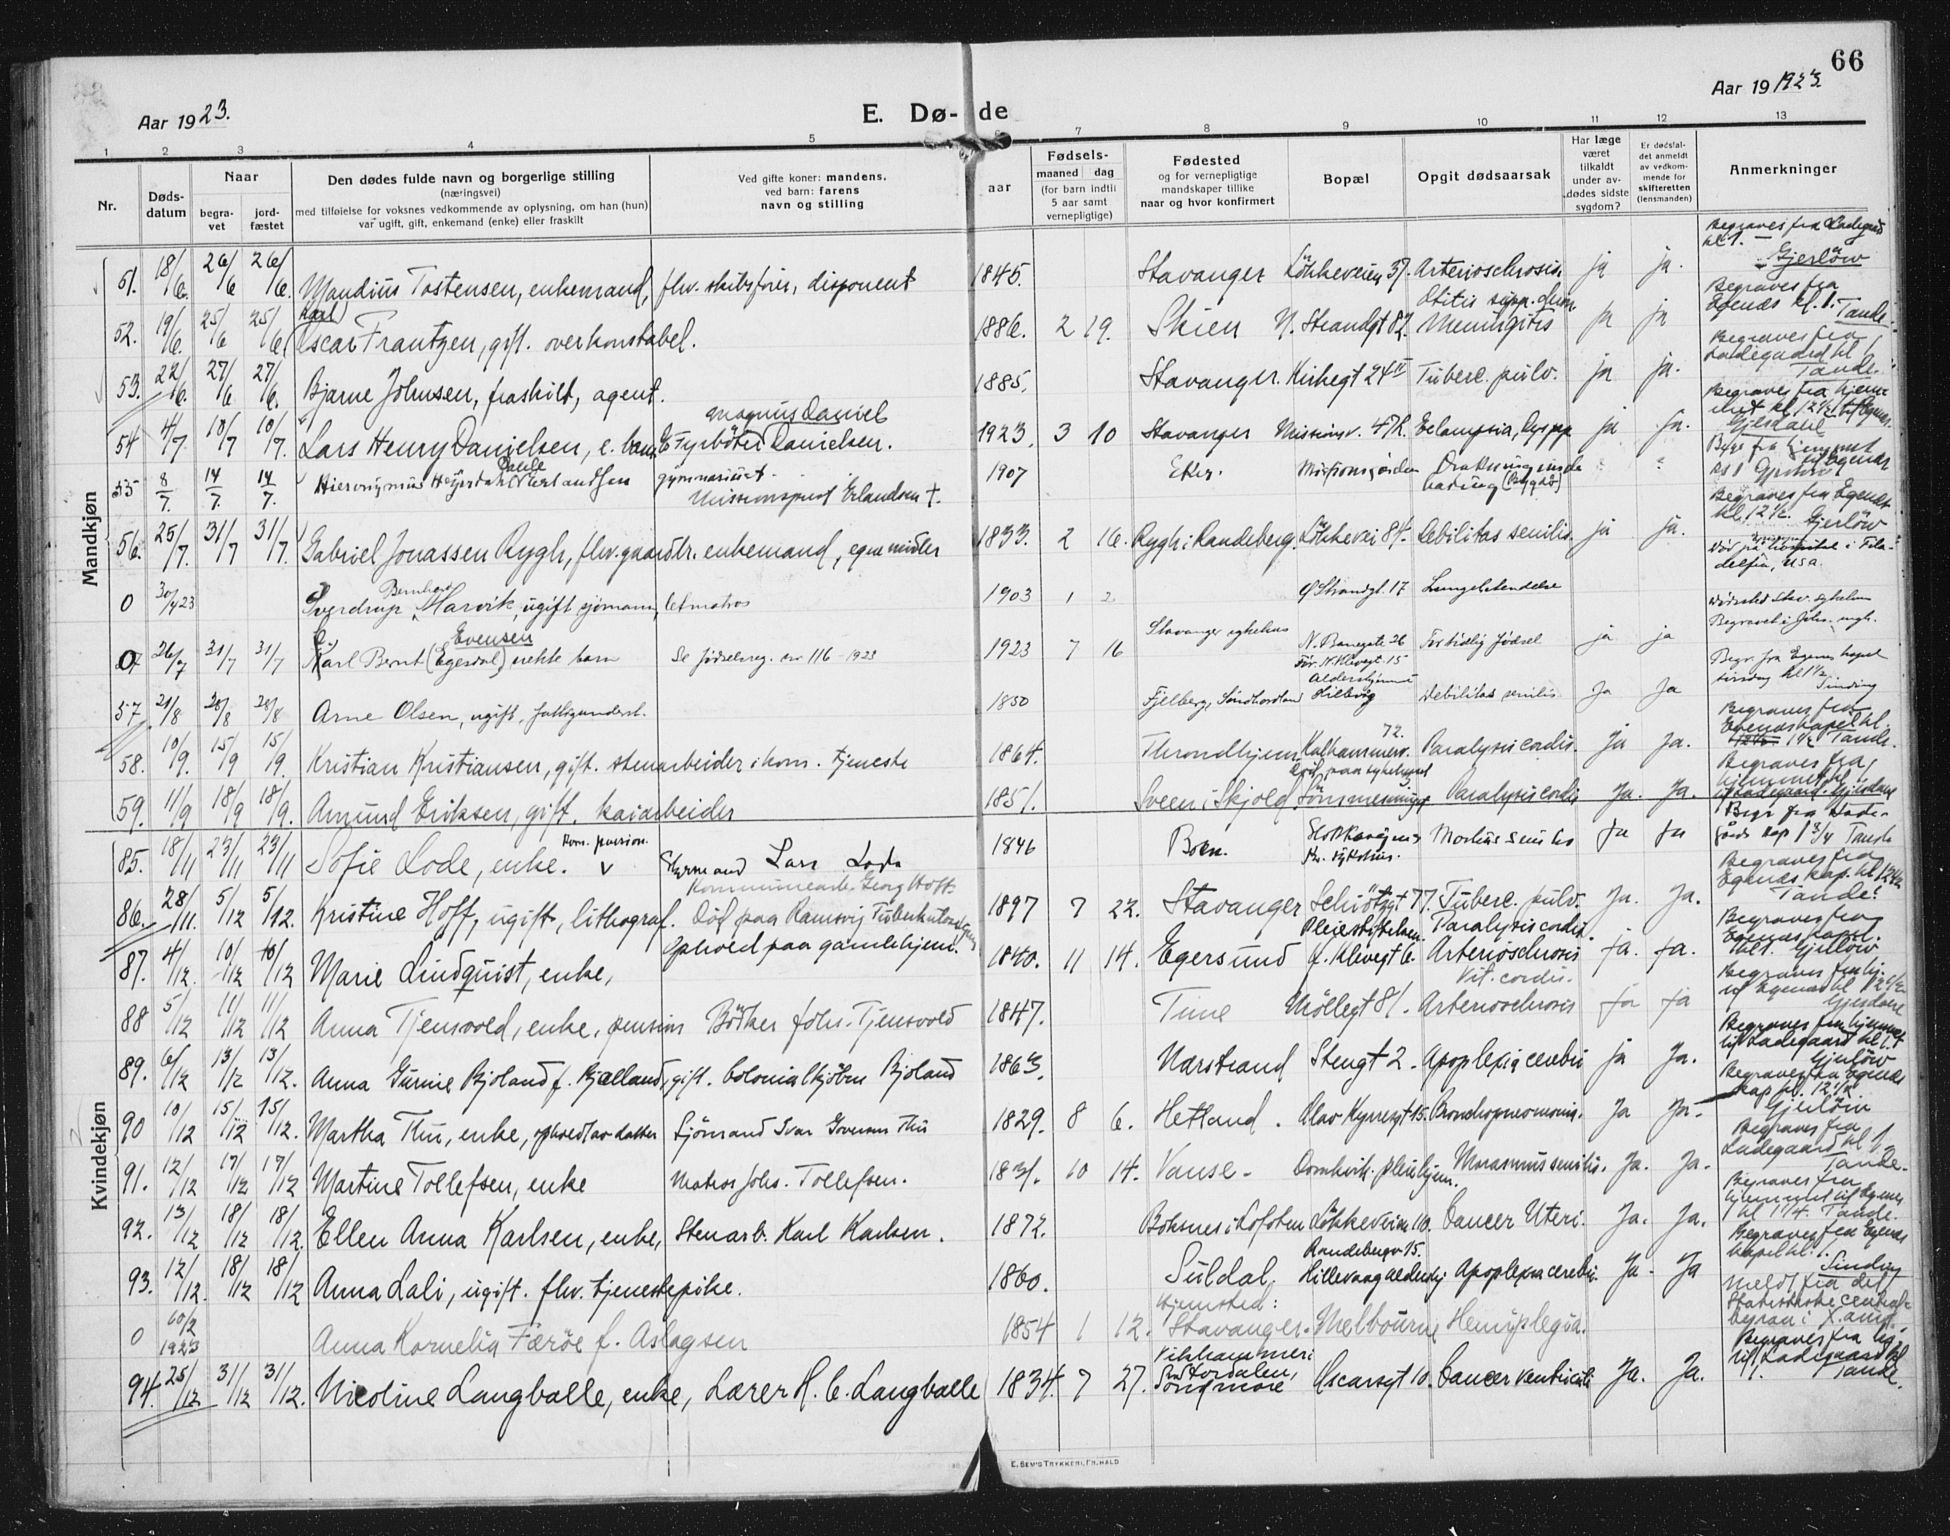 66
Aar 1923.
E. Dø-de
Aar 19 1923.
1 2 3 4 5 7 8 9 10 11 12 13
Nr.
Døds-datum
Naar
begra-vet
jord-fæstet
Den dødes fulde navn og borgerlige stilling
(næringsvei)
med tilføielse for voksnes vedkommende av oplysning, om han (hun)
var ugift, gift, enkemand (enke) eller fraskilt
Ved gifte koner: mandens.
ved barn: farens
navn og stilling
aar
Fødsels-
maaned dag
(for barn indtil
5 aar samt
vernepligtige)
Fødested
og for vernepligtige
mandskaper tillike
naar og hvor konfirmert
Bopæl
Opgit dødsaarsak
Har læge
været
tilkaldt
under av-
dødes sidste
sygdom?
Er dødsfal-
det anmeldt
av vedkom-
mende for
skifteretten
(lensmanden)
Anmerkninger
Mandkjøn
51. 18/6. 26/6 26/6. Mandius Tostensen, enkemand, fhv. skibsfører, disponent 1845. Stavanger Løkkeveien 37. Arteriosclerosis ja ja. Begraves fra Ladegaard kl 1. Gjerløw
52. 19/6. 25/6 25/6. (Karl) Oscar Frantzen, gift. overkonstabel. 1886. 2 19. Skien N. Strandgt 82. Otitis supp. Meningitis ja ja Begraves fra Egenæs kl. 1. Tande.
53. 22/6. 27/6 27/6. Bjarne Johnsen, fraskilt, agent. 1885. Stavanger. Kirkegt 24 II Tuberc. pulv. ja ja. Begraves fra Ladegaard kl 1 Tande.
54 4/7 10/7 10/7. Lars Henry Danielsen, e. barn Fyrbøter Magnus Daniel Danielsen. 1923. 3 10 Stavanger Missionsv. 47b. Eclampsia, Dyspp ja ja. Begraves fra hjemmet kl 12½ til Egenæs. Gjesdahl
55 8/7. 14/7. 14/7. Hieronymus Heyerdahl Erlandsen gymnasiast. Missionsprest Erlandsen †. 1907 Etter. Missionsgården Drukning under bading " "
56. 25/7. 31/7 31/7. Gabriel Jonassen Rygh, fhv. gaardbr. enkemand, egne midler 1833. 2 16. Rygh i Randeberg. Løkkevei 84. Debilitas senilis. ja ja. Begraves fra Egenæs kl 12½. Gjerløw
0 30/4 23 Sverdrup Bernhard Marvik, ugift sjømann, letmatros 1903 1 2 Ø. Strandgt. 17 Lungebetendelse Død på hospital i Fila-delfia, USA.
0 26/7 31/7 31/7 Karl Bernt (Egesdal) Evensen uekte barn Se fødselsreg. nr 116 - 1923 1923 7 16 Stavanger sykehus N. Banegate 26 For tidlig fødsel ja ja
57 21/8 28/8 28/8 Arne Olsen, ugift, fattigunderst. 1850 Fjelberg, Søndhordland Aldershjemmet Hillevåg Debilitas senilis Ja Ja Begr. fra Egenes kapel tirsdag kl 1½ Sinding
58. 10/9. 15/9 15/9. Kristian Kristiansen, gift. stenarbeider i kom. tjeneste 1864. Throndhjem Kalhammerv. 72. Paralysis cordis. Ja Ja. Begraves fra Egenæs kapel kl. 12½ 1½ Tande.
59. 11/9 18/9 18/9. Amund Eriksen, gift. kaiarbeider 1851. Sveen i Skjold. Paralysis cordis Ja. Ja. Begraves fra hjemmet kl 1 Ladegaard. Gjesdahl
Kvindekjøn
85. 18/11 23/11 23/11 Sofie Lode, enke. Kom. pension. Lars Lode 1846 Boen. Marasmus senilis Ja Ja Begr fra Lade-gårds kap 1 3/4 Tande
86. 28/11. 5/12 5/12. Kristine Hoff, ugift, lithograf. Kommunearb. Georg Hoff. Død paa Ramsvig Tuberkulosehjem 1897 7 22. Stavanger Schiøtzgt 77. Tuberc. pulv. Ja. Ja. Begraves fra Egenæs kap. kl 12½ Tande.
87. 4/12. 10/12 10/12 Marie Lindquist, enke, Ophold paa gamlehjem. 1840. 11 14. Egersund Pleiestiftelsen f. Klevegt 6. Paralysis cordis. Arteriosclerosis Ja. Ja. Begraves fra Egenæs kapel. kl 1. Gjerløw
88 5/12 11/12 11/12 Anna Tjensvold, enke, pension Bødker Johs. Tjensvold 1847. Time Møllegt 81. Vit. cordis. Arteriosclerosis ja ja
89. 6/12 13/12 13/12. Anna Gurine Bjoland f. Kjælland, gift. Colonialkjøbm Bjoland 1863. Nærstrand Stengt 2. Apoplexia cerebri ja Ja. Begraves fra hjemmet til Ladegaard kl 1. Gjerløw
90 10/12 15/12 15/12. Martha Thu, enke, ophold av datter Sjømand Ivar Govertsen Thu 1829. 8 6. Hetland. Olav Kyrresgt 15. Bronchopneumonia. Ja Ja. Begraves fra Egenæs kap kl. 12½ Gjerløw
91. 12/12 17/12 17/12 Martine Tollefsen, enke Matros Johs. Tollefsen. 1831. 10 14. Vanse - Domkirk. pleiehjem. Marasmus senilis. Ja. Ja. Begraves fra Ladegaard kl 1 Tande.
92. 13/12 18/12 18/12. Ellen Anna Karlsen, enke, Stenarb. Karl Karlsen. 1872. Boksnes i Lofoten Løkkeveien 10. Cancer Uteri. Ja. Ja. Begraves fra hjemmet til Egenes kl 1¼. Tande.
93. 12/12. 18/12 18/12 Anna Lali, ugift. fhv. tjenestepike. 1860. Suldal, Randebergv 15. Hillevaag aldershj Apoplexia cerebri. Ja. Ja Begraves fra Egenæs kapel kl. 1. Sinding
0 10/2 1923 Anna Kornelia Færøe f. Aslagsen 1854 1 12. Hjemsted: Stavanger. Melbourne Hemiplegia. Meldt fra det Statistiske central-byrau i X.ania.
94. 25/12 31/12 31/12. Nicoline Langballe, enke, Lærer H. C. Langballe 1834. 7 27. Vikhammer i Stordalen, Søndmøre Oscarsgt 10. Cancer ventriculi Ja. Ja. Begraves fra lig. til Ladegaard kl 1. Tande.
E. BEM'S TRYKKERI, FR. HALD